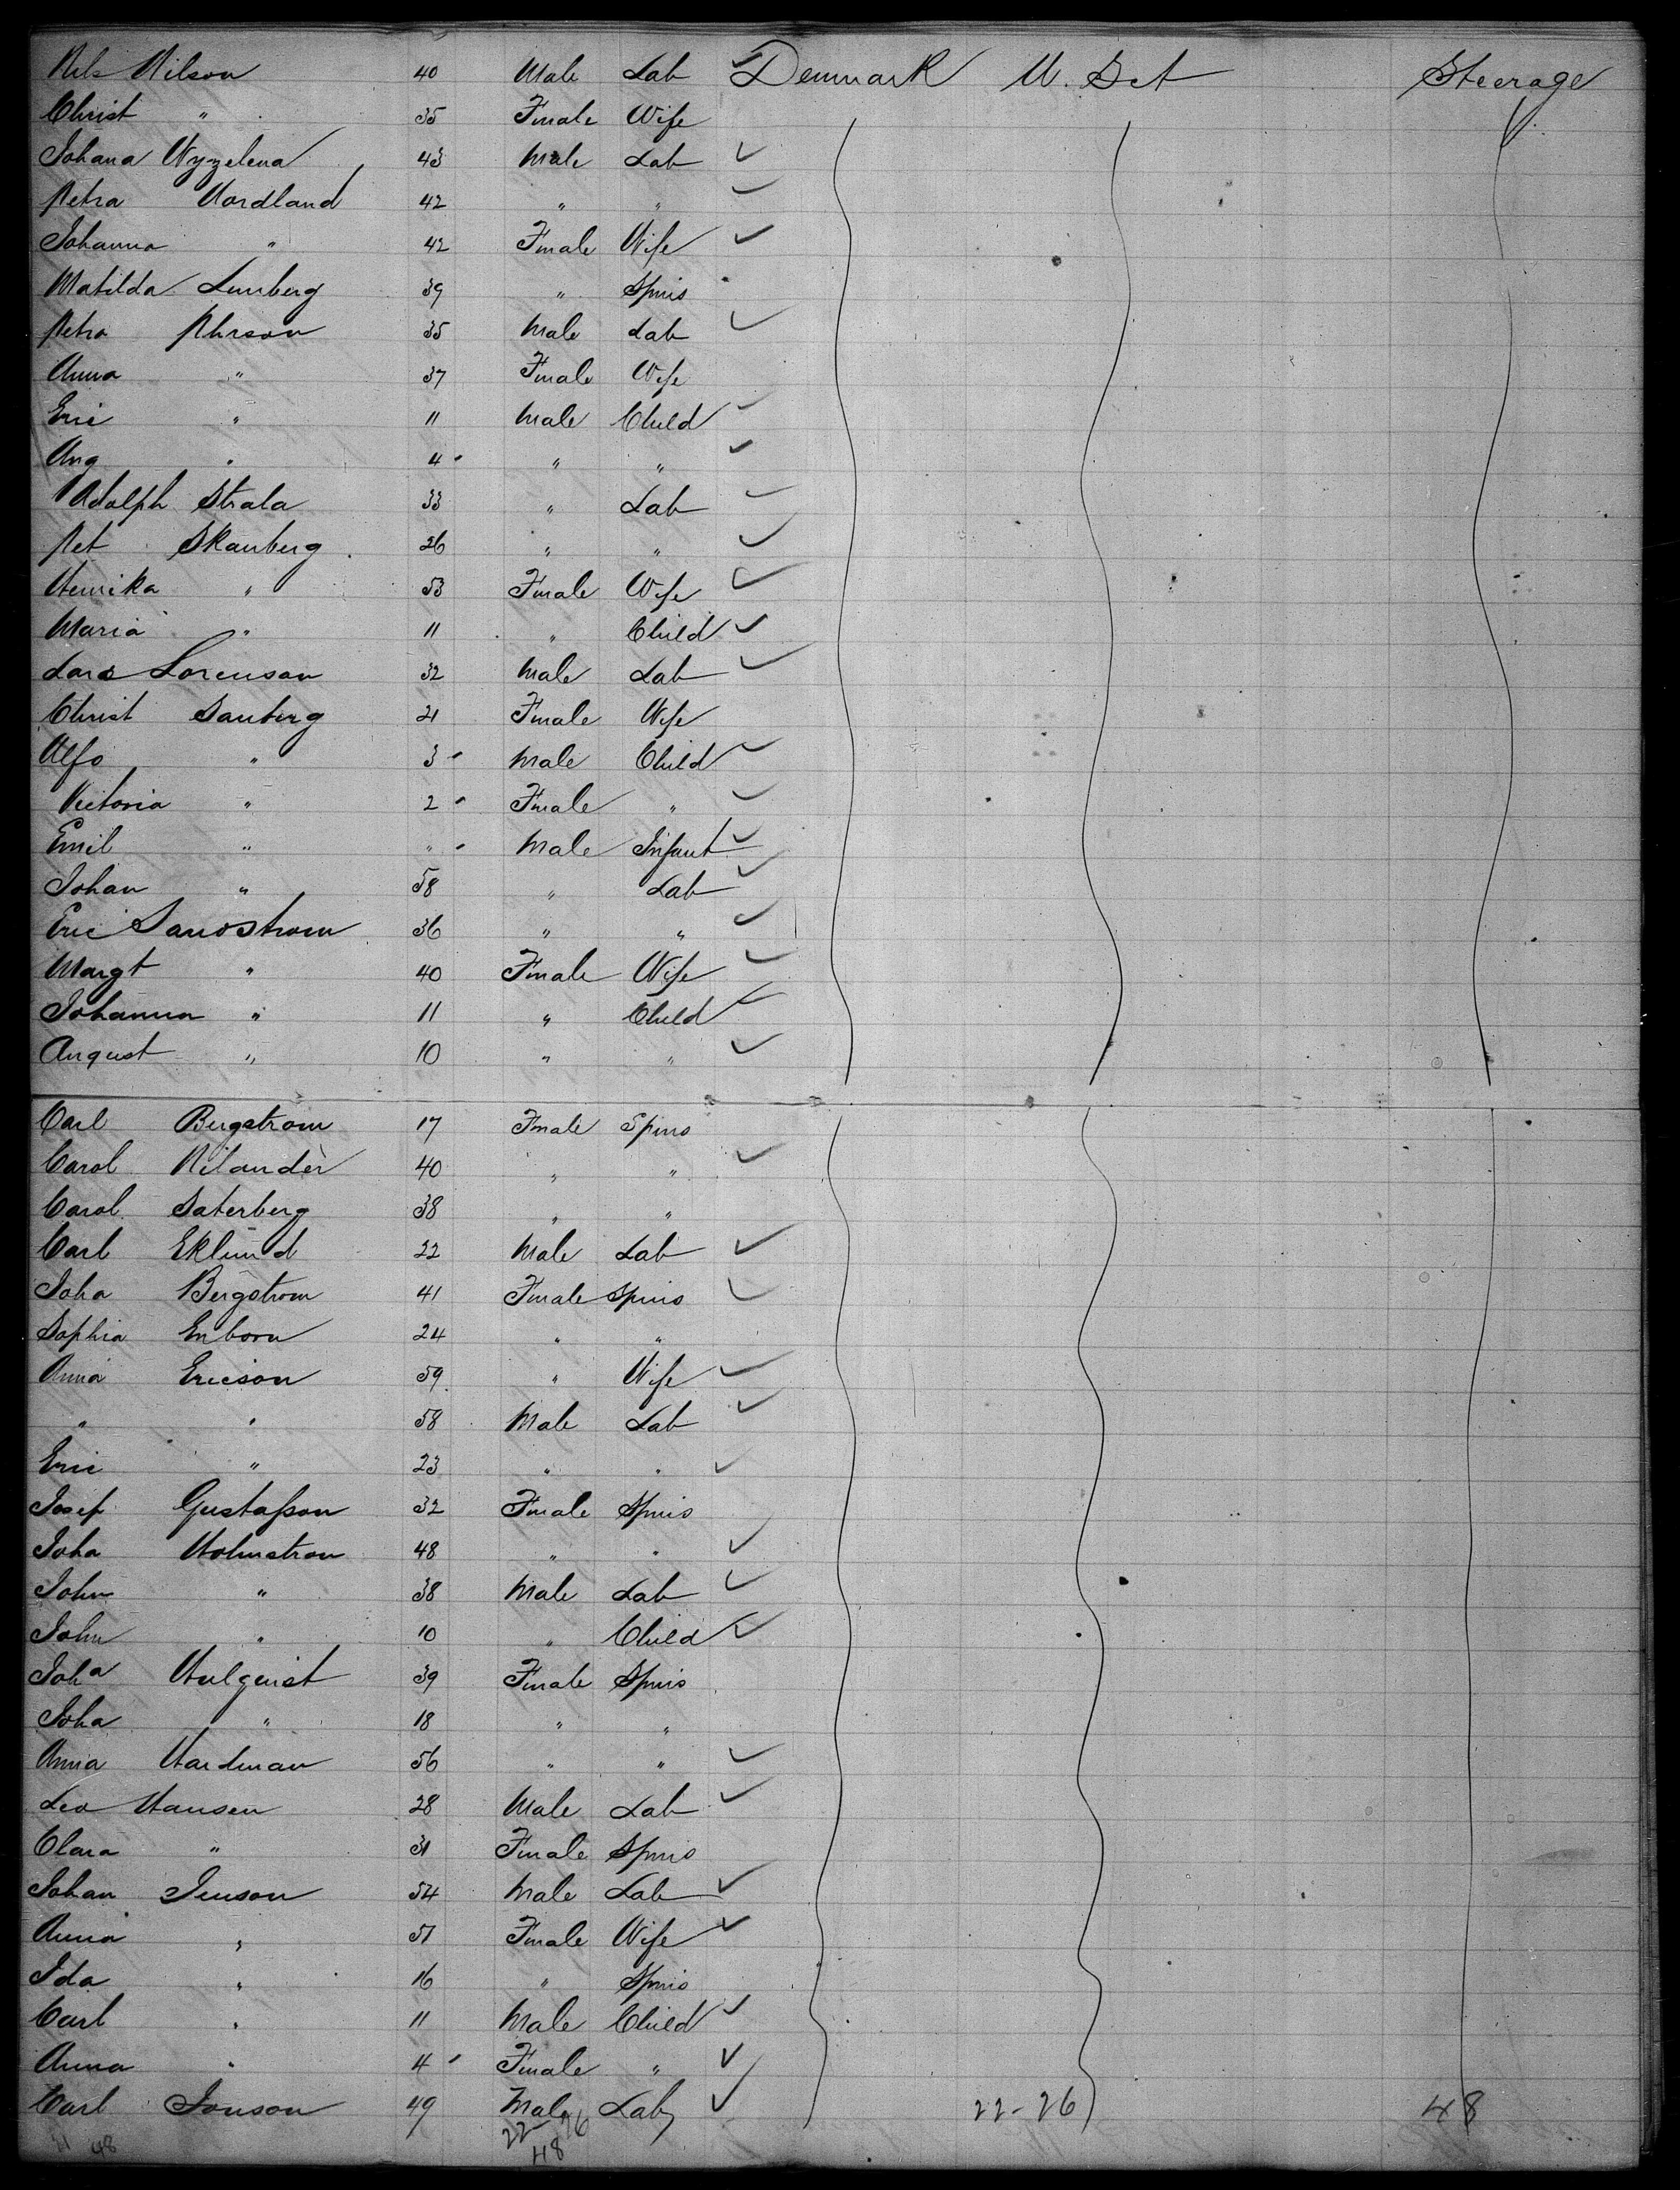 Nils Nilson 40 Male Lab Denmark U. Sct Steerage
Christ " 35 Fmale Wife
Johana Wyzelena 43 Male Lab
Petra Nordland 42 " "
Johanna " 42 Fmale Wife
Matilda Lunberg 39 " Spins
Petra Phrson 35 Male Lab
Anna " 37 Fmale Wife
Eric " 11 Male Child
Aug " 4 " "
Adolph Strala 33 " Lab
Pet Skanberg 26 " "
Henrika " 53 Fmale Wife
Maria " 11 " Child
Lars Lorenson 32 Male Lab
Christ Sanberg 21 Fmale Wife
Alfo " 3 Male Child
Victoria " 2 Fmale "
Emil " " Male Infant
Johan " 58 " Lab
Eric Sandstrom 36 " "
Margt " 40 Fmale Wife
Johanna " 11 " Child
August " 10 " "
Carl Bergstrom 17 Fmale Spins
Carol Nilander 40 " "
Carol Saterberg 38 " "
Carl Eklund 22 Male Lab
Joha Bergstrom 41 Fmale Spins
Sophia Enborn 24 " "
Anna Ericson 59 " Wife
" " 58 Male Lab
Eric " 23 " "
Josef Gustafson 32 Fmale Spins
Joha Holmstrom 48 " "
John " 38 Male Lab
John " 10 " Child
Joha Hulquist 39 Fmale Spins
Joha " 18 " "
Anna Hardman 56 " "
Leo Hansen 28 Male Lab
Clara " 31 Fmale Spins
Johan Jenson 54 Male Lab
Anna " 51 Fmale Wife
Ida " 16 " Spins
Carl " 11 Male Child
Anna " 4 Fmale "
Carl Jonson 49 Male Lab 22-26 48
48 22 26
48